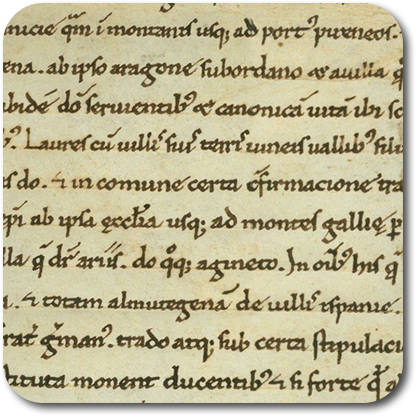 nicie q̄m i montanis usq; ad portꝰ pireneos.
ena. ab ipso aragone subordano & auilla q̄
ibidē dō seruientibꝰ & canonicā uitā ibi sc
Laures cū uillis suis terris uineis uallibꝰ silu
do. & in comune certa cfirmacione tra
epi ab ipsa ęcclia usq; ad montes gallię p
lla q̄ dr arius. do qq; agineto. In oibꝰ his q̄
a. & totam almutegenā de uillis ispanie.
grmanꝰ. trado atq; sub certa stipulaci
tituta monent ducentibꝰ & si forte qd a